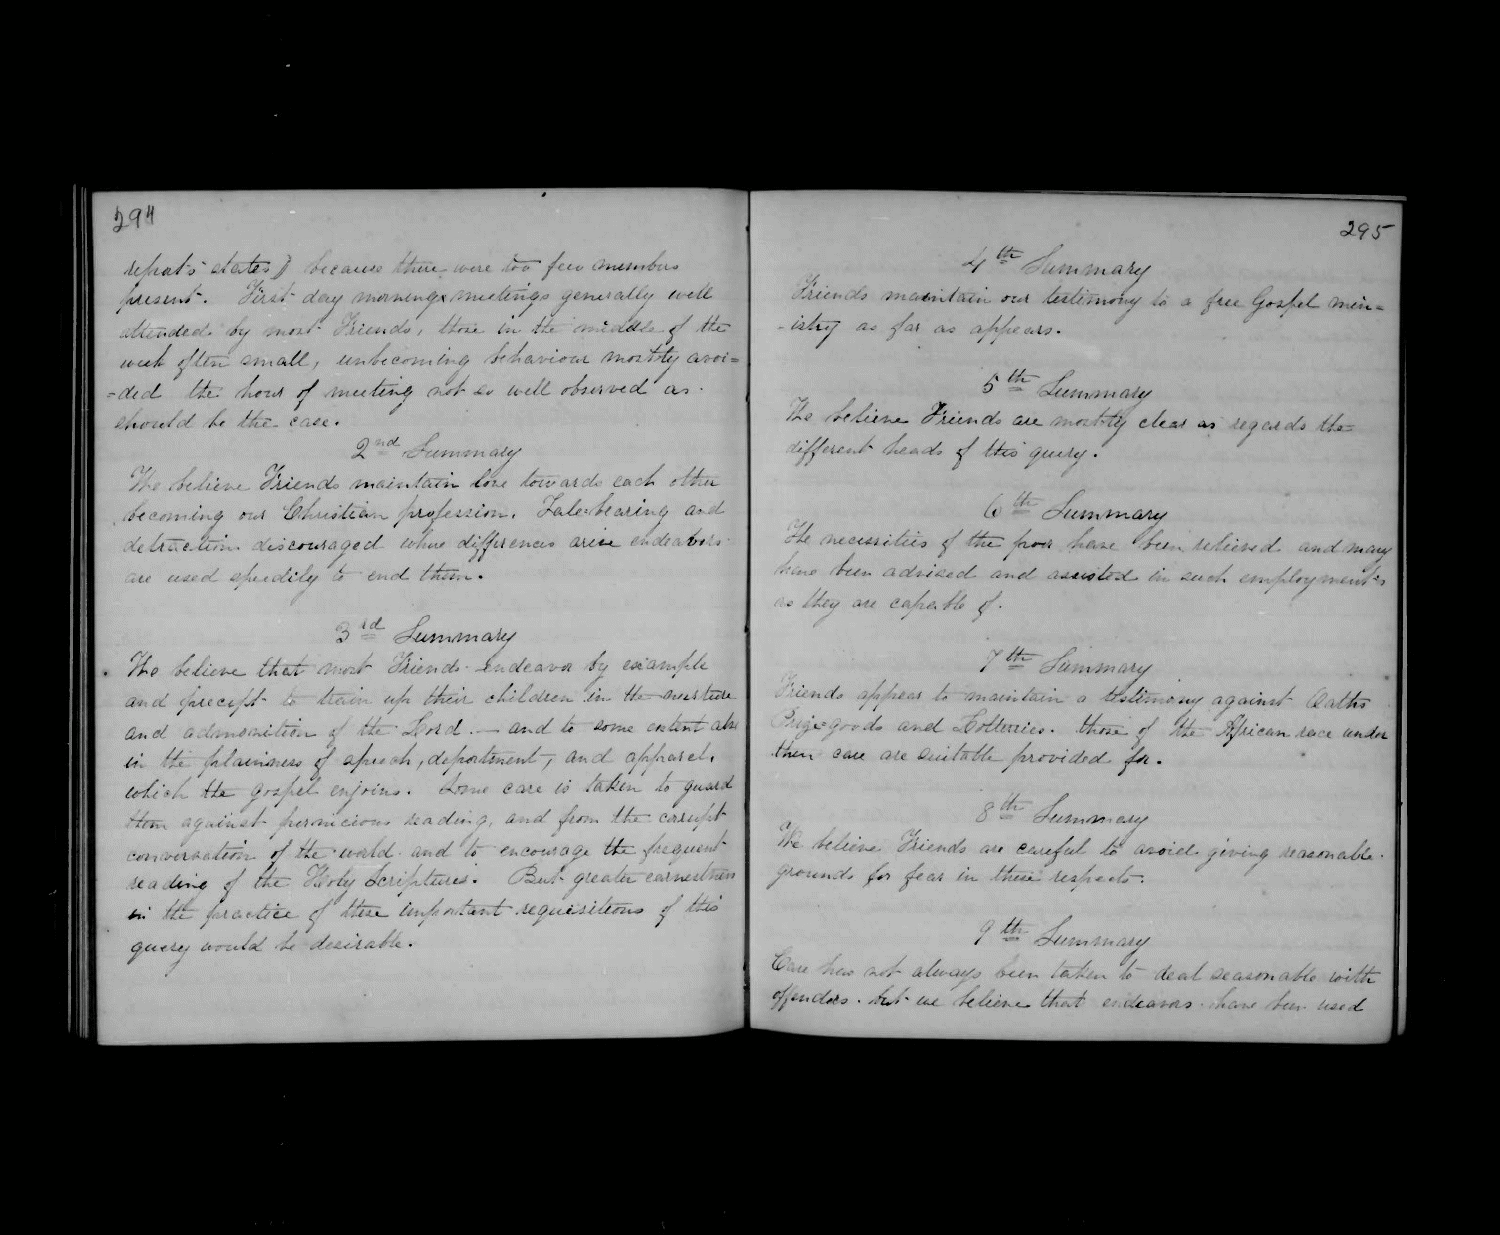 294
report states) because there were too few members
present. First day mornings meetings generally well
attended by most Friends, those in the middle of the
week often small, unbecoming behaviour mostly avoi=
=ded the hour of meeting not so well observed as
should be the case.
2nd Summary
We believe Friends maintain love towards each other
becoming our Christian profession. Tale=bearing and
detraction discouraged where differences arise endeavors
are used speedily to end them.
3rd Summary
We believe that most Friends endeavor by example
and precept to train up their children in the nurture
and admonition of the Lord. — and to some extent also
in the plainness of speech, deportment, and apparel,
which the gospel enjoins. Some care is taken to guard
them against pernicious reading, and from the corrupt
conversation of the world and to encourage the frequent
reading of the Holy Scriptures. But greater earnestness
in the practice of these important requisitions of this
query would be desirable.
295
4th Summary
Friends maintain our testimony to a free Gospel min=
=istry as far as appears.
5th Summary
We believe Friends are mostly clear as regards the
different heads of this query.
6th Summary
The necessities of the poor have been relieved and many
have been advised and assisted in such employments
as they are capable of.
7th Summary
Friends appear to maintain a testimony against Oaths
Prize=goods and Lotteries. those of the African race under
their care are suitable provided for.
8th Summary
We believe Friends are careful to avoid giving reasonable
grounds for fear in these respects.
9th Summary
Care has not always been taken to deal seasonable with
offenders. but we believe that endeavors have been used